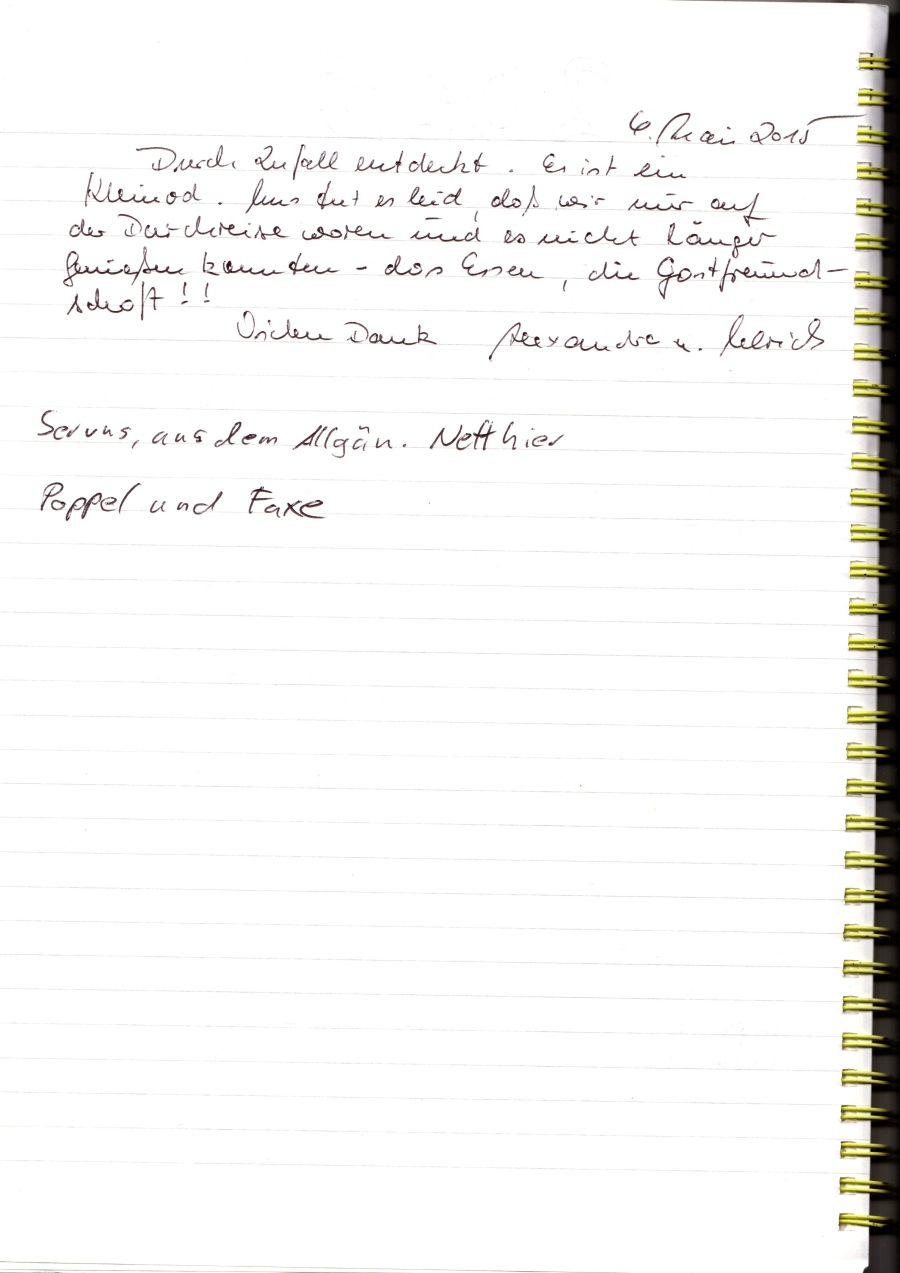 6. Mai 2015
Durch Zufall entdeckt. Es ist ein
Kleinod. Uns tut es leid, daß wir nur auf
der Durchreise waren und es nicht länger
genießen konnten - das Essen, die Gastfreund-
schaft!!
Vielen Dank Alexandra u. Ulrich
Servus, aus dem Allgäu. Nett hier
Poppel und Faxe